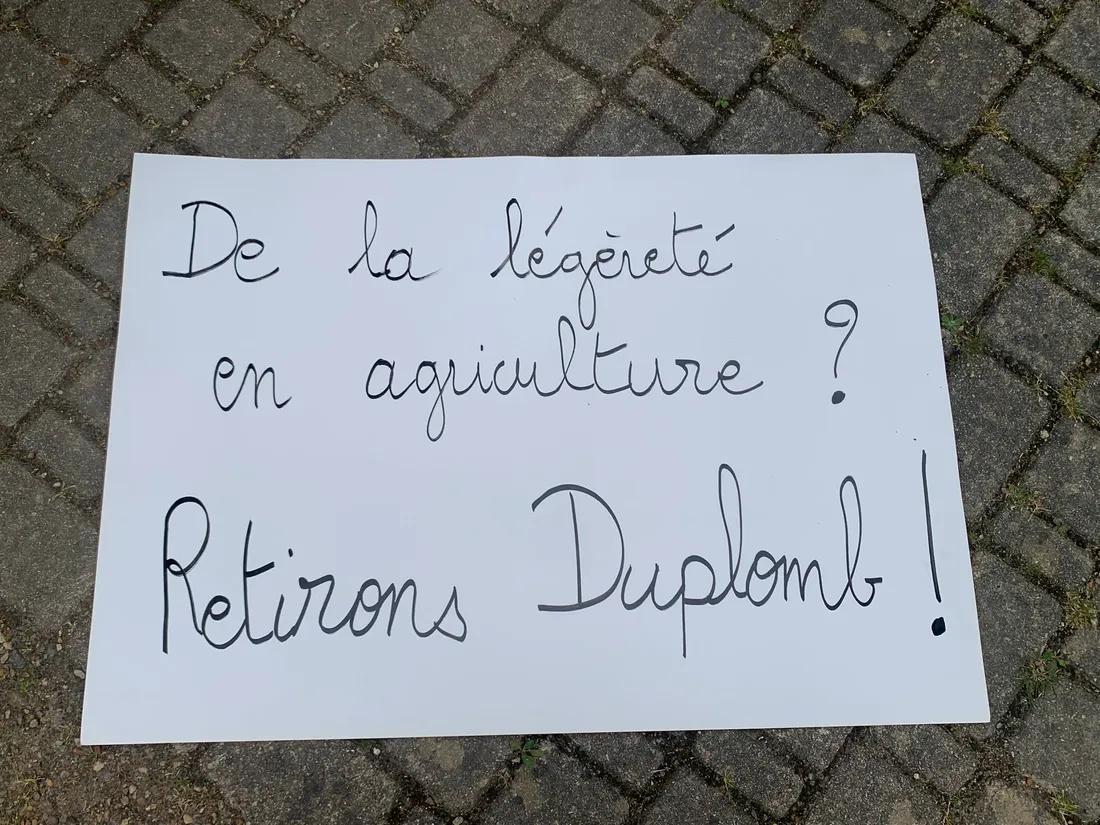 De la légèreté
en agriculture ?
Retirons Duplomb !